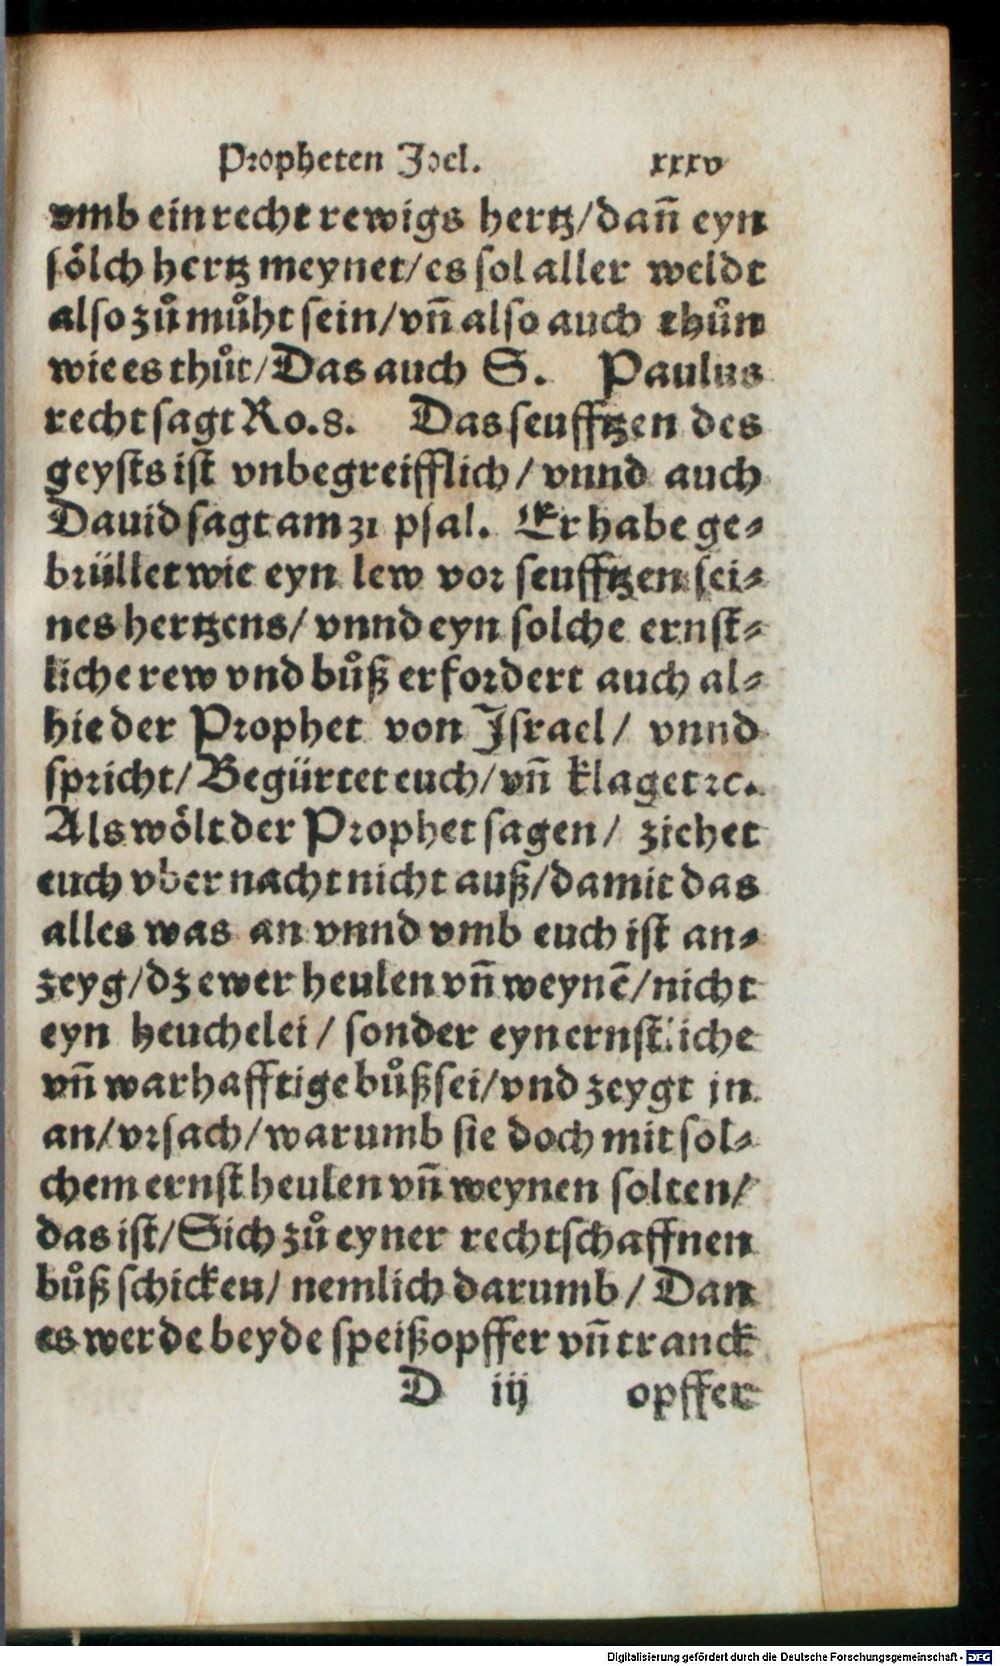 Propheten Joel. xxxv
vmb ein recht rewigs hertz/dañ eyn
sölch hertz meynet/es sol aller weldt
also zů můht sein/vñ also auch thůn
wie es thůt/Das auch S. Paulus
recht sagt Ro.8. Das seufftzen des
geysts ist vnbegreifflich/vnnd auch
Dauid sagt am 31 psal. Er habe ge⸗
brüllet wie eyn lew vor seufftzen sei⸗
nes hertzens/vnnd eyn solche ernst⸗
liche rew vnd bůß erfordert auch al⸗
hie der Prophet von Israel/ vnnd
spricht/Begürtet euch/vñ klaget ꝛc.
Als wölt der Prophet sagen/ ziehet
euch vber nacht nicht auß/damit das
alles was an vnnd vmb euch ist an⸗
zeyg/dz ewer heulen vñ weynē/nicht
eyn heuchelei/ sonder eyn ernstliche
vñ warhafftige bůß sei/vnd zeygt jn
an/vrsach/warumb sie doch mit sol⸗
chem ernst heulen vñ weynen solten/
das ist/Sich zů eyner rechtschaffnen
bůß schicken/ nemlich darumb/ Dan
es werde beyde speißopffer vñ tranck
D iij opffer
Digitalisierung gefördert durch die Deutsche Forschungsgemeinschaft - DFG